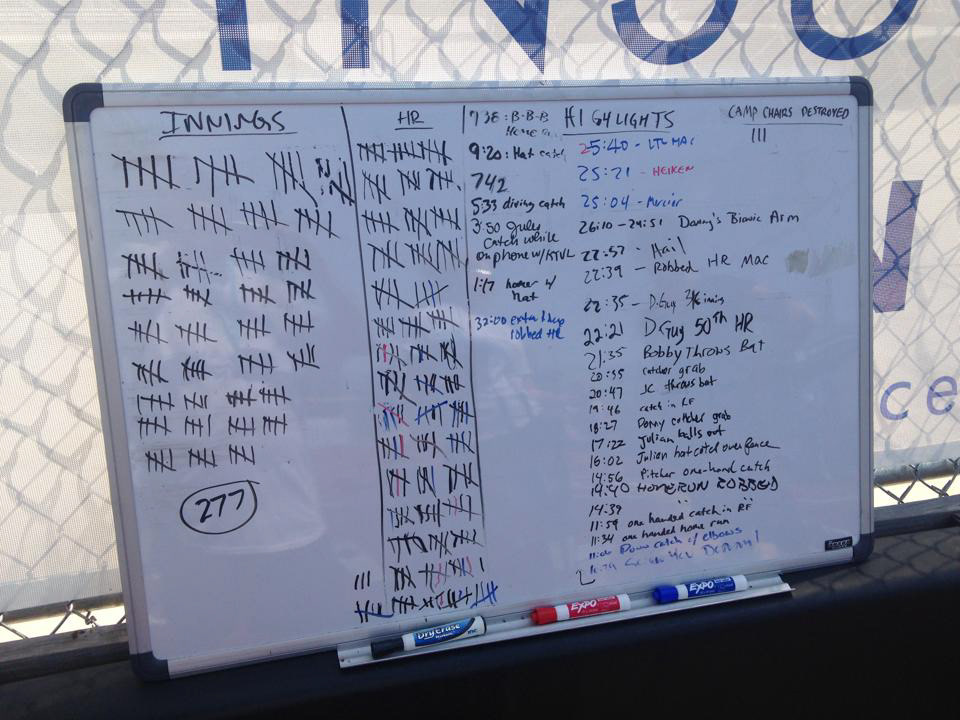 INNINGS
277
HR
HIGHLIGHTS
7:38: B-B-B
9:20: Hat catch
742
5:33 diving catch
3:50 July
catch while
on phone w/KTVL
1:17 homer w/
hat
32:00 extra
robbed HR
25:40 - LTL MAC
25:21 - HEIKEN
25:04 - Mercier
26:10 - 24:51 Danny's Bionic Arm
22:57 - Hail
22:39 - Robbed HR Mac
22:35 - D.Guy
22:21 D Guy 50th HR
21:35 Bobby Throws Bat
20:55 catcher grab
20:47 JC throws bat
19:46 catch in RF
18:27 Donny catcher grab
17:22 Julian balls out
16:02 Julian hat catch over fence
14:56 Pitcher one-hand catch
14:40 HOMERUN ROBBED
14:39 " "
11:59 one handed catch in RF
11:34 one handed home run
catch w/ elbows
CAMP CHAIRS DESTROYED
III
DryErase
EXPO
EXPO
ce